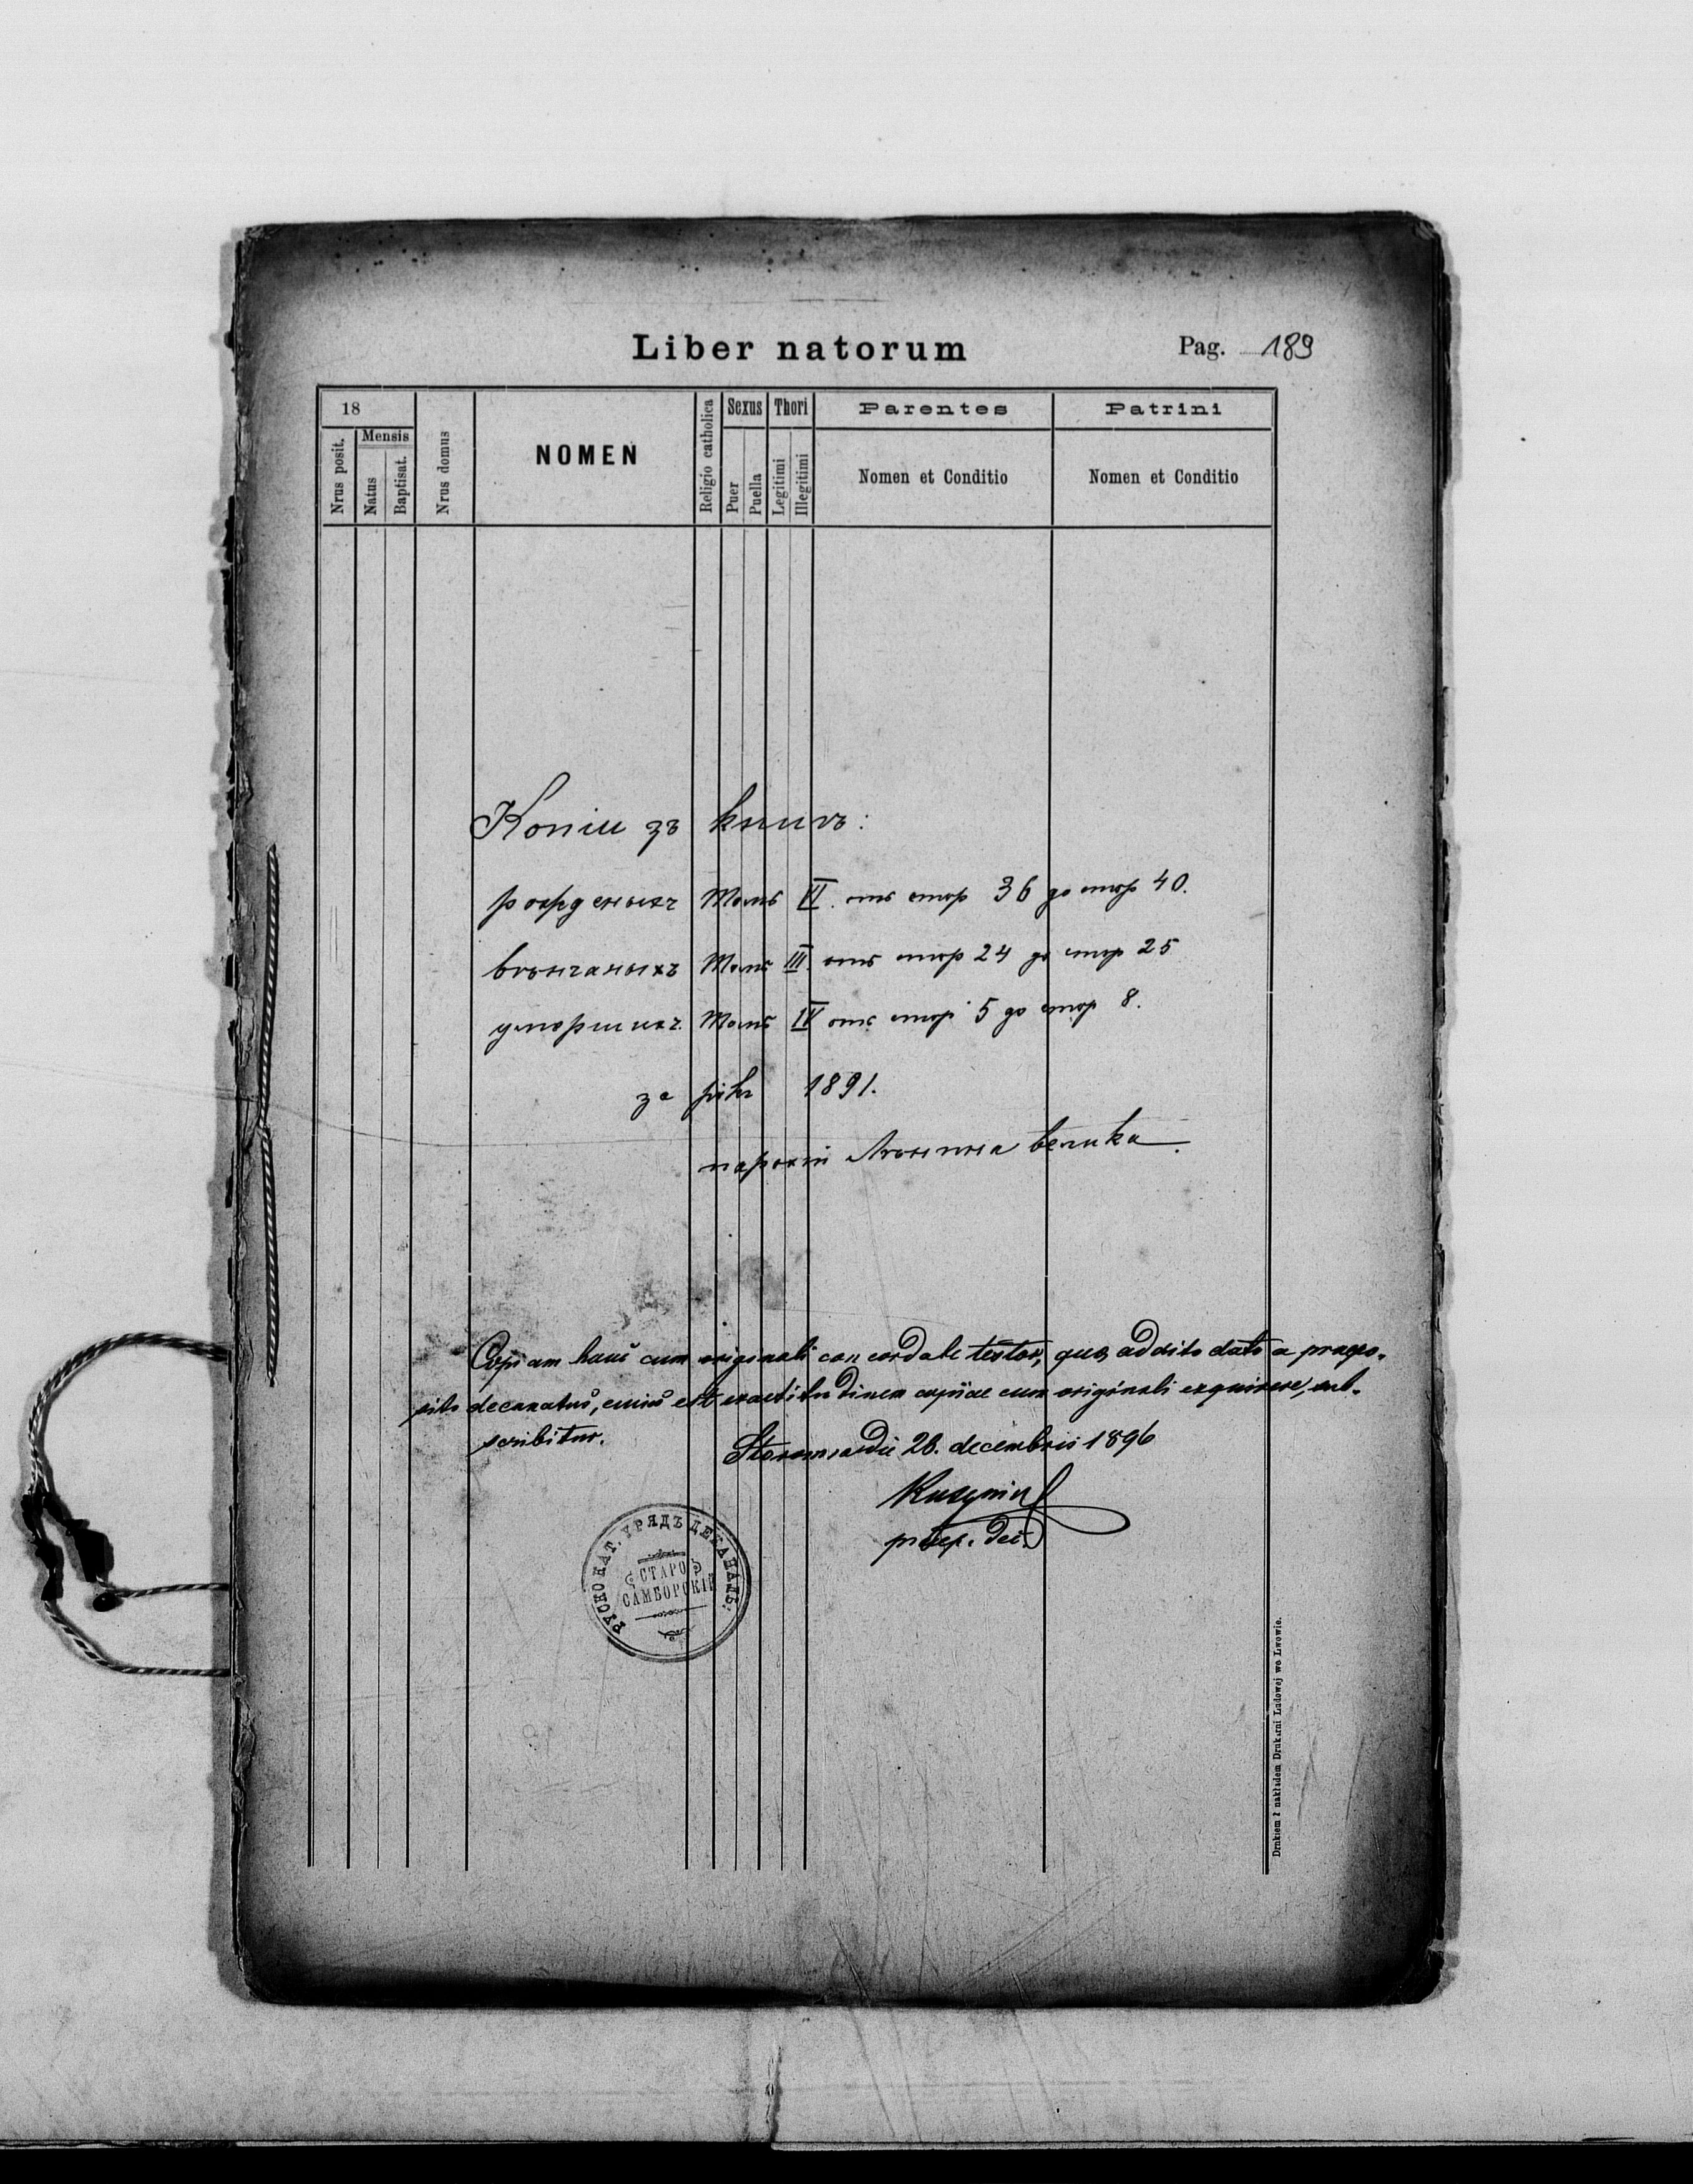 Liber natorum
Pag. 189
18
Nrus posit.
Mensis
Natus
Baptisat.
Nrus domus
NOMEN
Religio catholica
Sexus
Puer
Puella
Thori
Legitimi
Illegitimi
Parentes
Nomen et Conditio
Patrini
Nomen et Conditio
Копіи зъ книгъ:
рожденыхъ Томъ VI. отъ стор 36 до стор 40.
вѣнчаныхъ Томъ III. отъ стор 24 до стор 25
умершихъ Томъ IV отъ стор 5 до стор 8.
за рікъ 1891.
парохіи Лѣнина велика.
Copiam hanc cum originali concordate testor, quo addito dato a praepo-
sito decanatus, cuius est exactitudinem copiae cum originali exquirere, sub-
scribitur.
die 28. decembris 1896
praep. dec.
РУСКО КАТ. УРЯДЪ ДЕКАНАЛЬ.
СТАРО
САМБОРСКІЙ
Drukiem i nakładem Drukarni Ludowej we Lwowie.